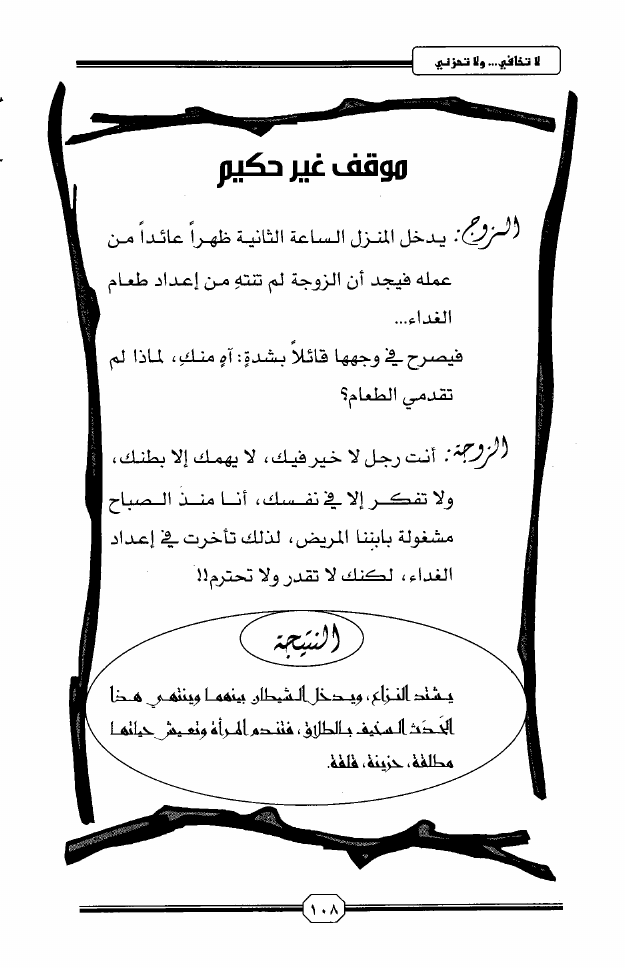 لا تخافي... ولا تحزني
موقف غير حكيم
الزوج: يدخل المنزل الساعة الثانية ظهراً عائداً من
عمله فيجد أن الزوجة لم تنتهِ من إعداد طعام
الغداء...
فيصرح في وجهها قائلاً بشدةٍ: آهٍ منكِ، لماذا لم
تقدمي الطعام؟
الزوجة: أنت رجل لا خير فيك، لا يهمك إلا بطنك،
ولا تفكر إلا في نفسك، أنا منذ الصباح
مشغولة بابننا المريض، لذلك تأخرت في إعداد
الغداء، لكنك لا تقدر ولا تحترم!!
النتيجة
يشتد النزاع، ويدخل الشيطان بينهما وينتهي هذا
الحَدَث السخيف بالطلاق، فتندم المرأة وتعيش حياتها
مطلقة، حزينة، قلقة.
١٠٨